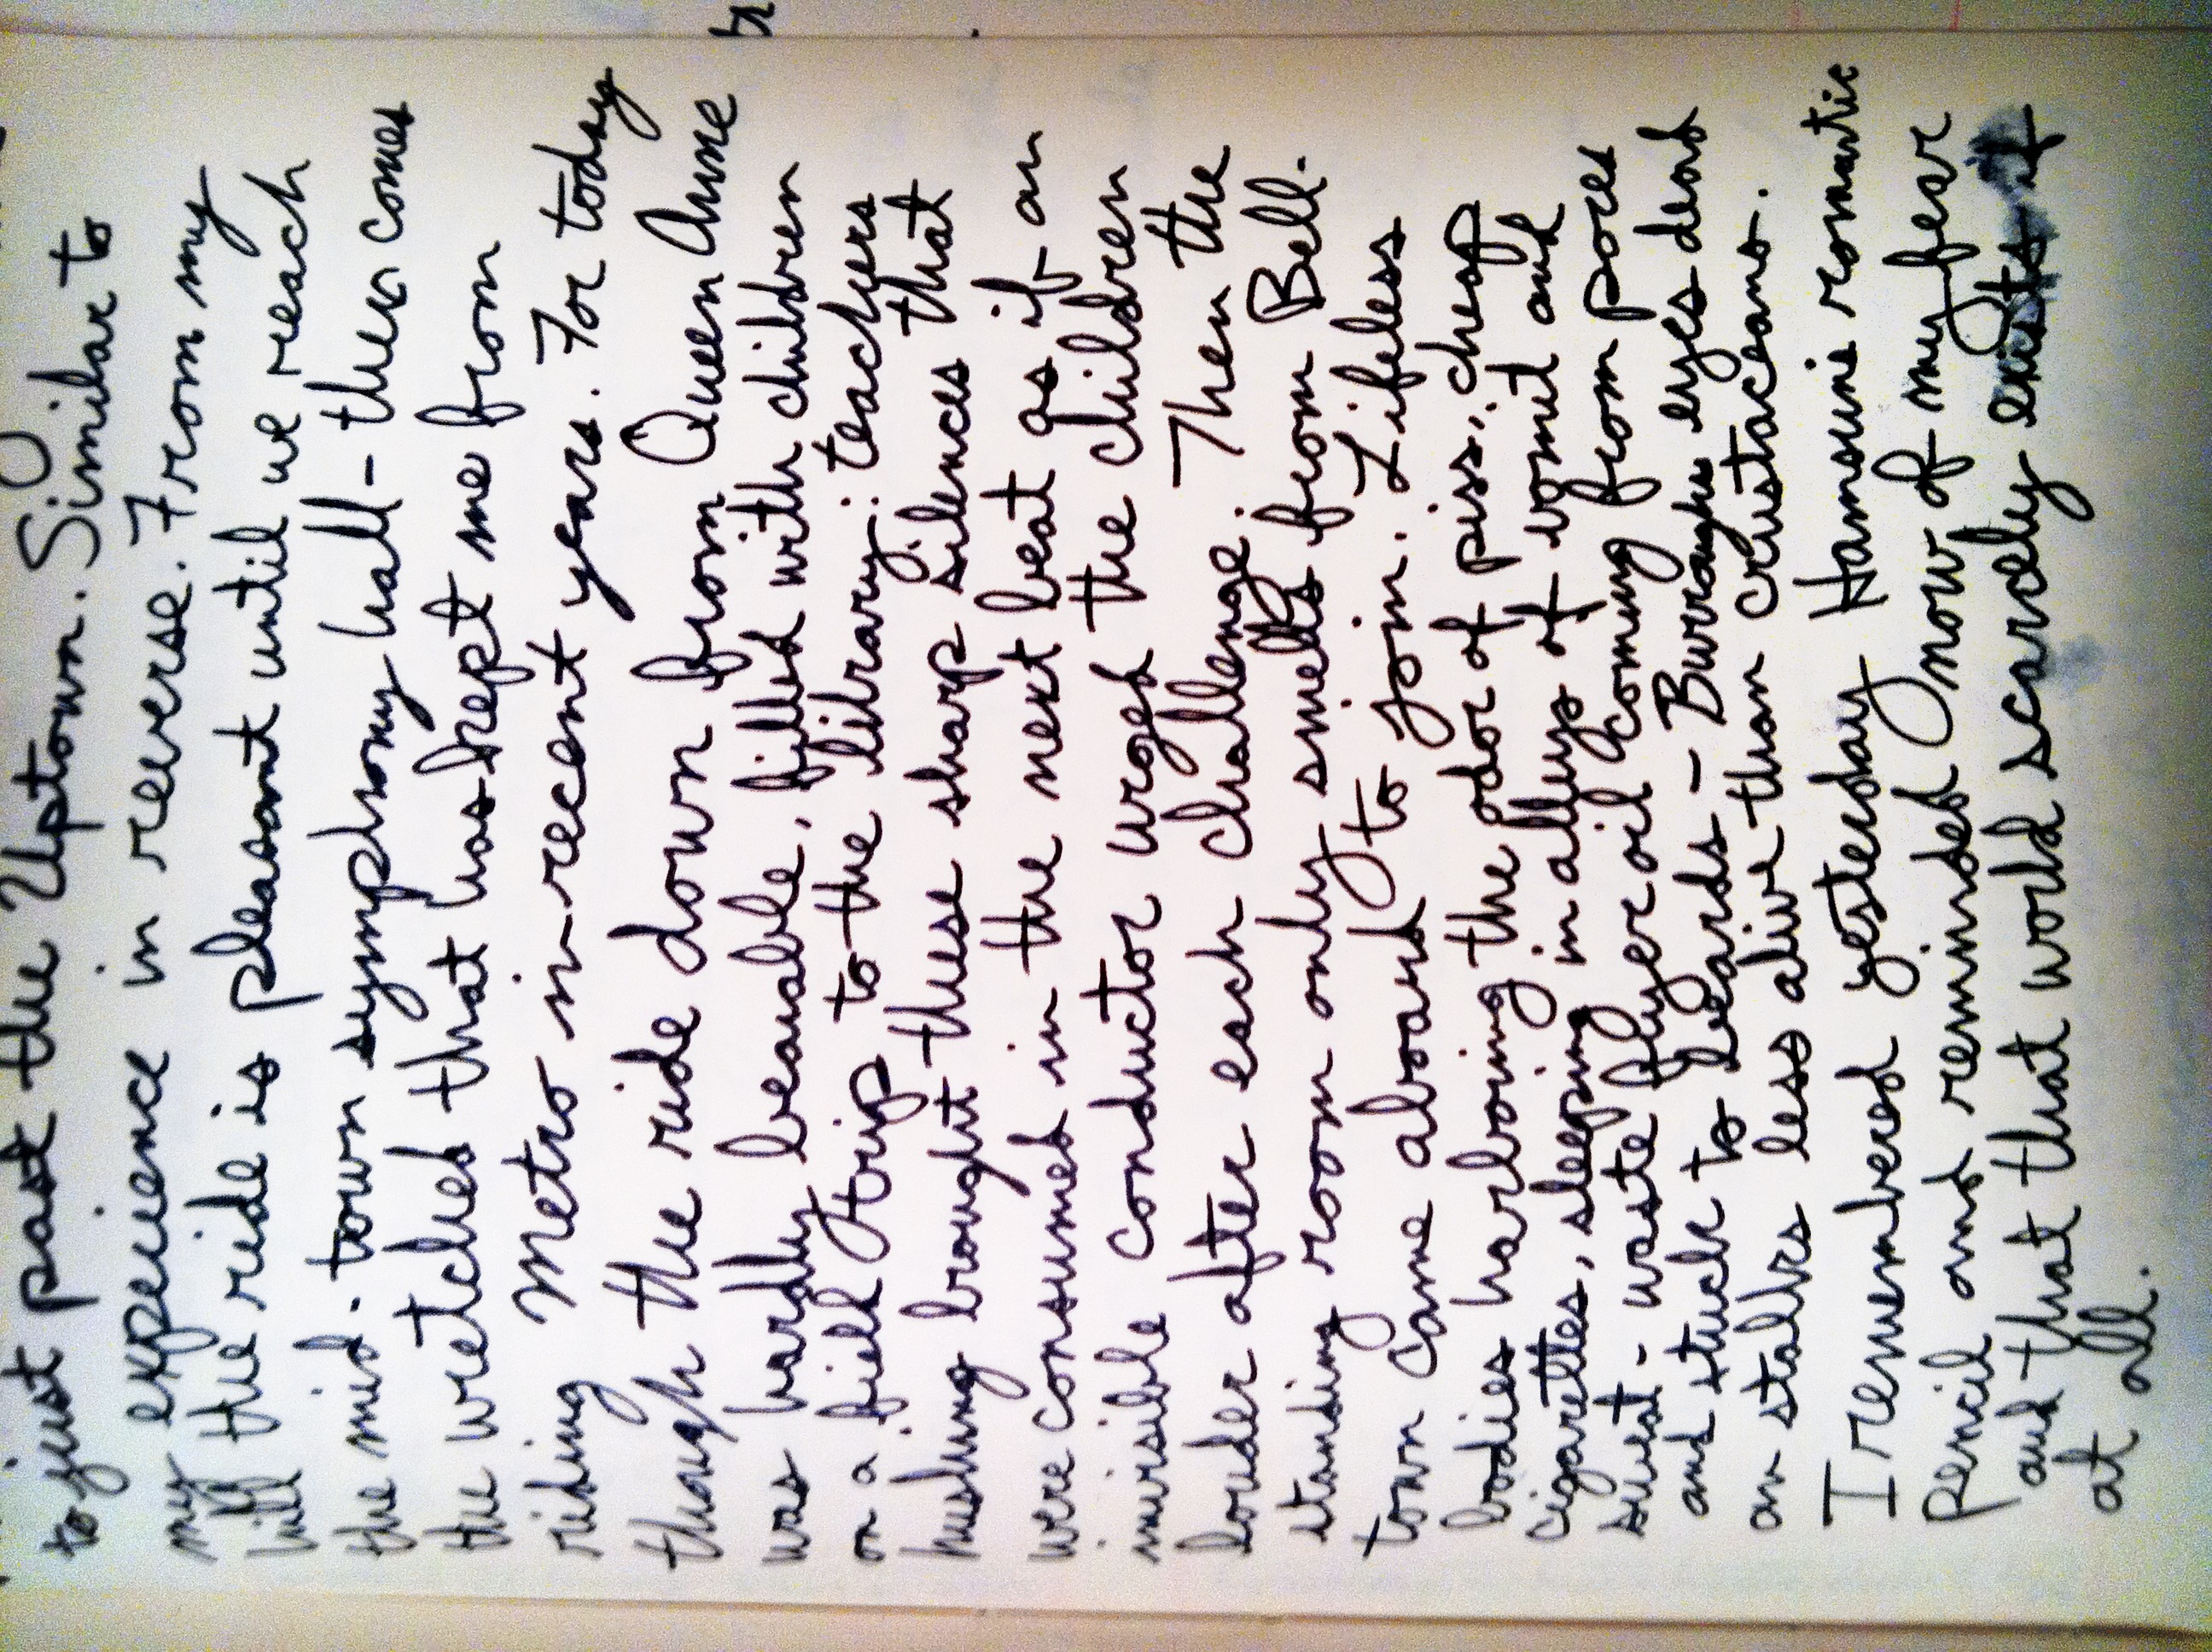 to just past the Uptown. Similar to
my experience in reverse. From my
hill the ride is pleasant until we reach
the mid-town symphony hall - then comes
the wretched that has kept me from
riding Metro in recent years. For today
though the ride down from Queen Anne
was hardly bearable, filled with children
on a field trip to the library: teachers
hushing brought these sharp silences that
were consumed in the next beat as if an
invisible conductor urged the children
louder after each challenge. Then the
standing room only smells from Bell.
town came aboard to join. Lifeless
bodies harboring the odor of piss, cheap
cigarettes, sleeping in alleys of vomit and
sweat - waste fryer oil coming from pores
and stuck to beards - Burroughs eyes dead
on stalks less alive than crustaceans.
I remembered yesterday Hamsuns romantic
pencil and reminded now of my fear
and that that would scarcely exists if
at all.